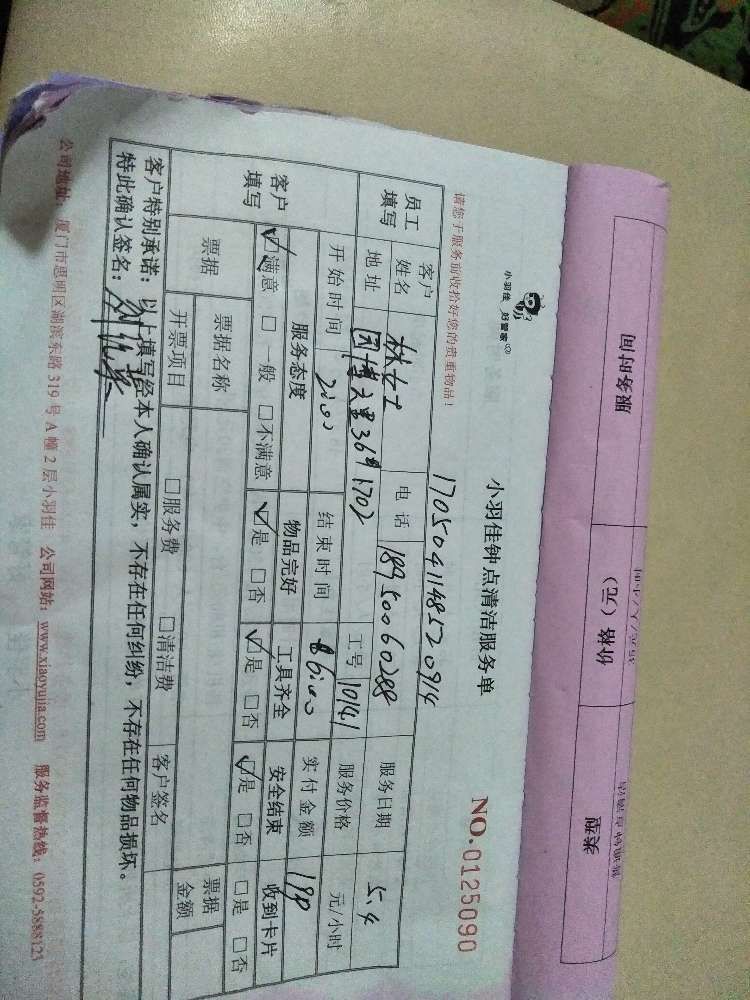 服务时间
价格（元）
类型
小羽佳 好管家
小羽佳钟点清洁服务单
NO.0125090
请您于服务前收拾好您的贵重物品！
1705041148520914
员工填写
客户姓名
林女士
电话
18950060288
服务日期
5.4
地址
园博六里36# 1702
工号
10141
服务价格
元/小时
客户填写
开始时间
2:00
结束时间
6:00
实付金额
服务态度
物品完好
工具齐全
安全结束
收到卡片
☑满意 □一般 □不满意
☑是 □否
☑是 □否
☑是 □否
□是 □否
票据
票据名称
客户签名
票据金额
开票项目
□服务费 □清洁费
客户特别承诺：以上填写经本人确认属实，不存在任何纠纷，不存在任何物品损坏。
特此确认签名：
公司地址：厦门市思明区湖滨东路319号A幢2层小羽佳 公司网站：www.xiaoyujia.com 服务监督热线：0592-5888123